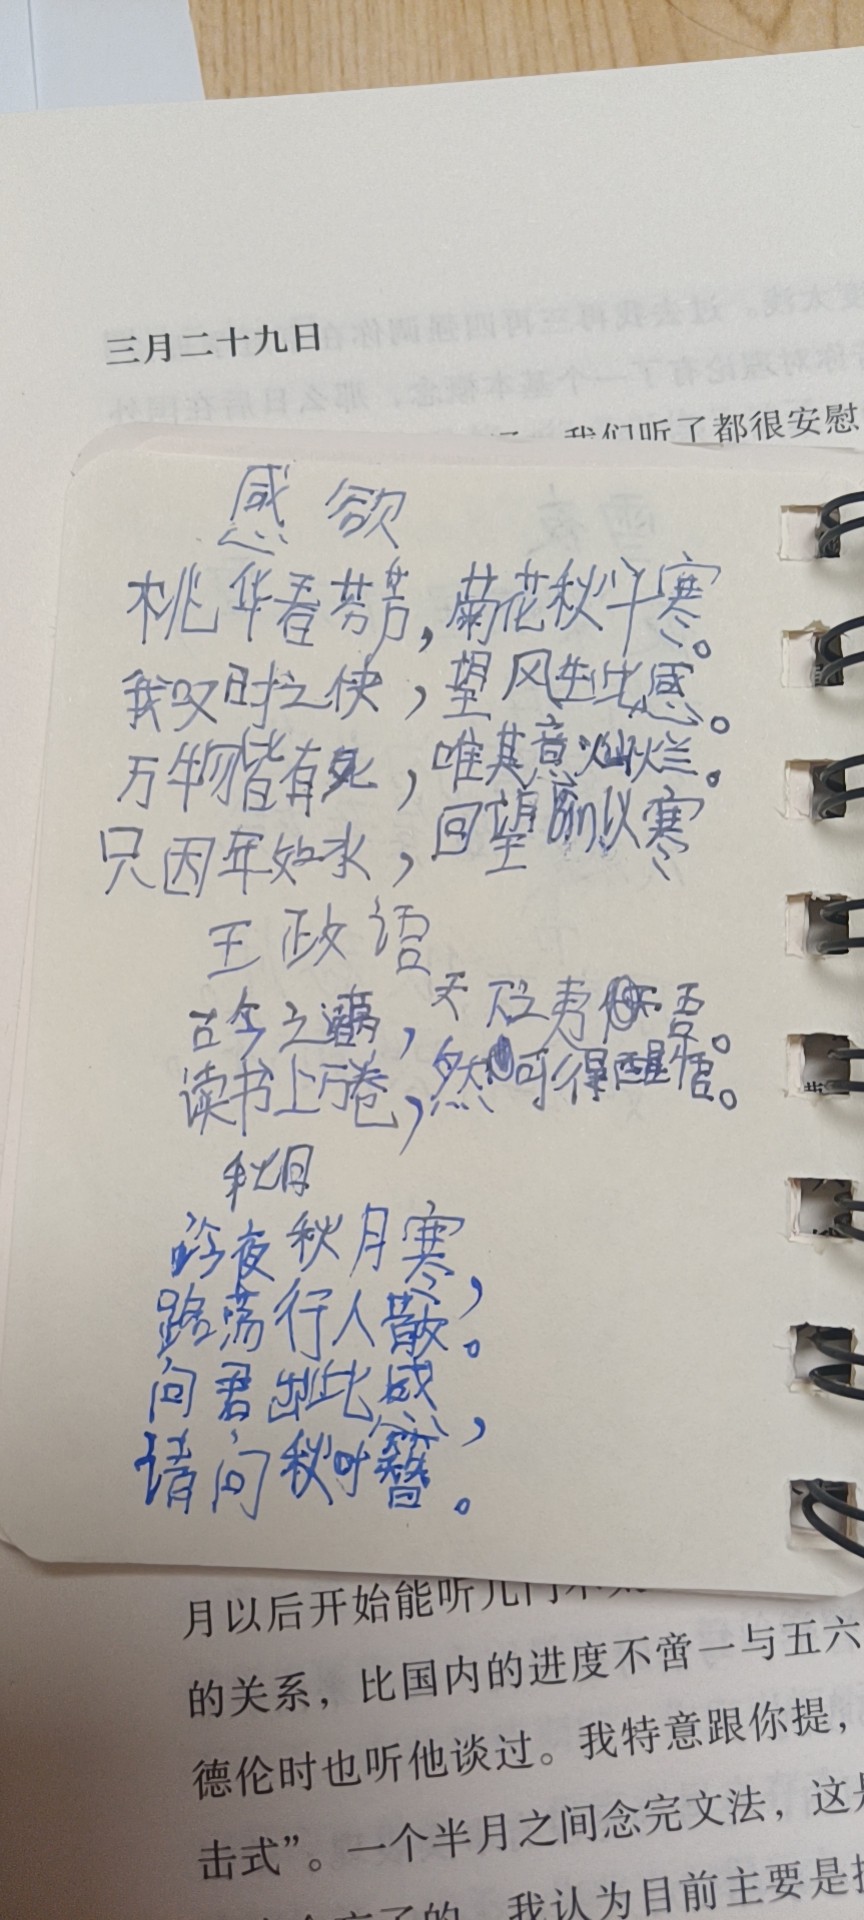 三月二十九日
我们听了都很安慰
感欲
桃华看芬芳,菊花秋半寒。
我叹时之快,望风生此感。
万物皆有死,唯其意灿烂。
只因年如水,回望前以寒
王政语
古今之谲,天下之夷 吾。
读书上万卷,然 可得醒悟。
秋月
昨夜秋月寒,
路荡行人散。
问君出此感,
请问秋叶簪。
月以后开始能听几门
的关系,比国内的进度不啻一与五六
德伦时也听他谈过。我特意跟你提,
击式”。一个半月之间念完文法,这是
的,我认为目前主要是